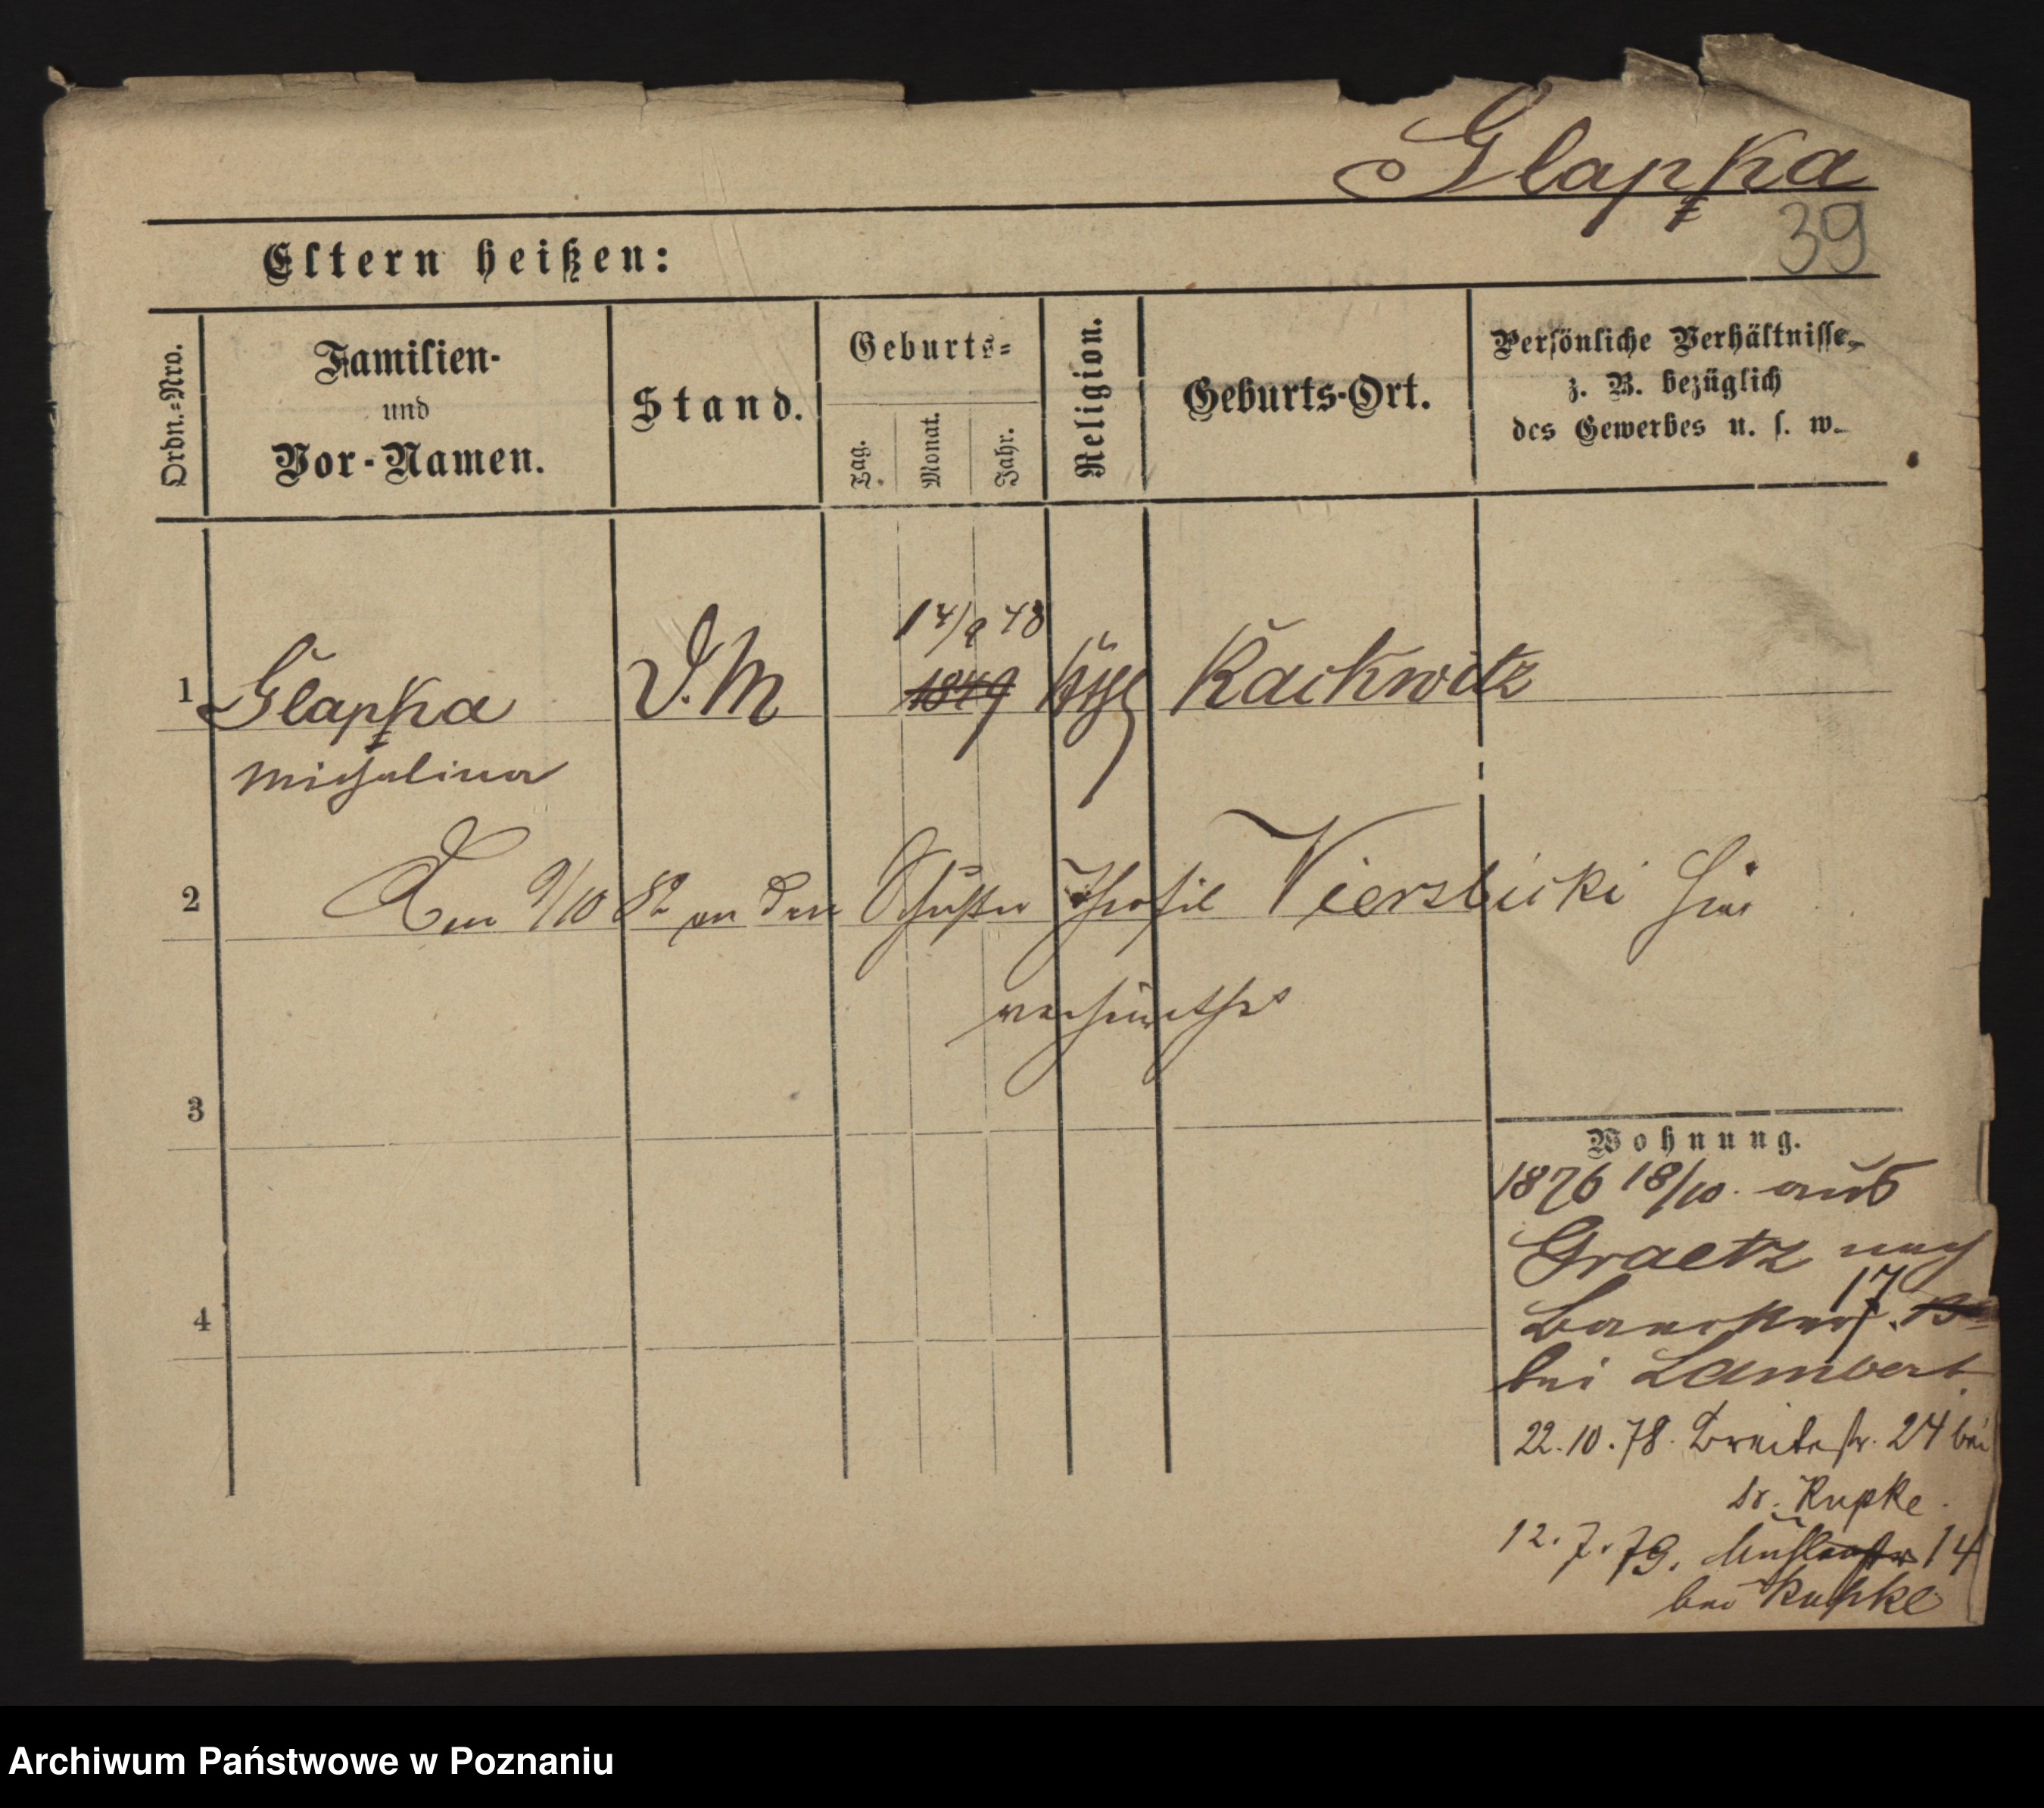 Glapka
39
Eltern heißen:
Ordn.=Nro.
Familien-
und
Vor-Namen.
Stand.
Geburts=
Tag.
Monat.
Jahr.
Religion.
Geburts-Ort.
Persönliche Verhältnisse,
z. B. bezüglich
des Gewerbes u. s. w.
14/9 48
1 Glapka D. M 1849 kath Rackwitz
Michalina
2 Am 9/10 82 an den Schuster Theofil Vierzbicki hier
verheirathet
3
4
Wohnung.
1876 18/10. aus
Graetz nach
17
bei Lambert
22.10.78. Breitestr. 24 bei
Dr. Rupke.
12.7.79. Mühlenstr 14
bei Rupke
Archiwum Państwowe w Poznaniu